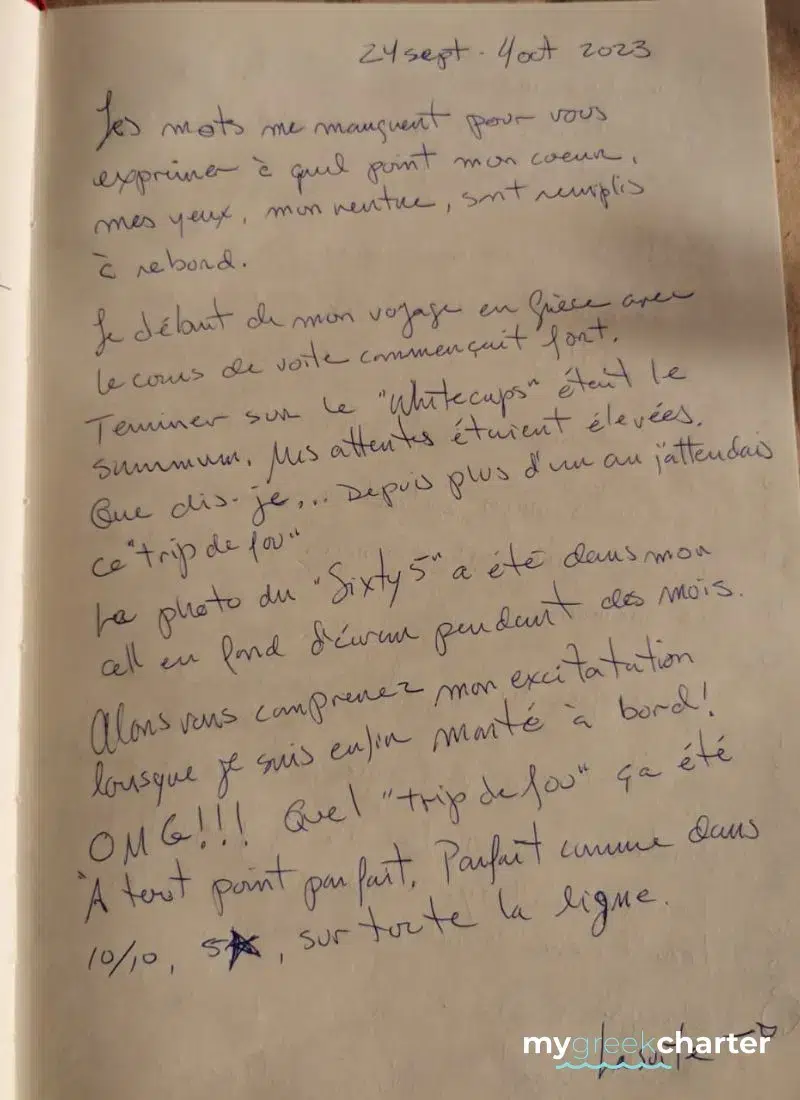 24 sept - 4 oct 2023
Les mots me manquent pour vous
exprimer à quel point mon coeur,
mes yeux, mon ventre, sont remplis
à rebord.
Le début de mon voyage en Grèce avec
le cours de voile commençait fort.
Terminer sur le "Whitecaps" était le
summum. Mes attentes étaient élevées.
Que dis-je,... Depuis plus d'un an j'attendais
ce "trip de fou"
La photo du "Sixty 5" a été dans mon
cell en fond d'écran pendant des mois.
Alors vous comprenez mon excitatation
lorsque je suis enfin monté à bord!
OMG!!! Quel "trip de fou" ça été
À tout point parfait. Parfait comme dans
10/10, 5★, sur toute la ligne.
La suite →
mygreekcharter